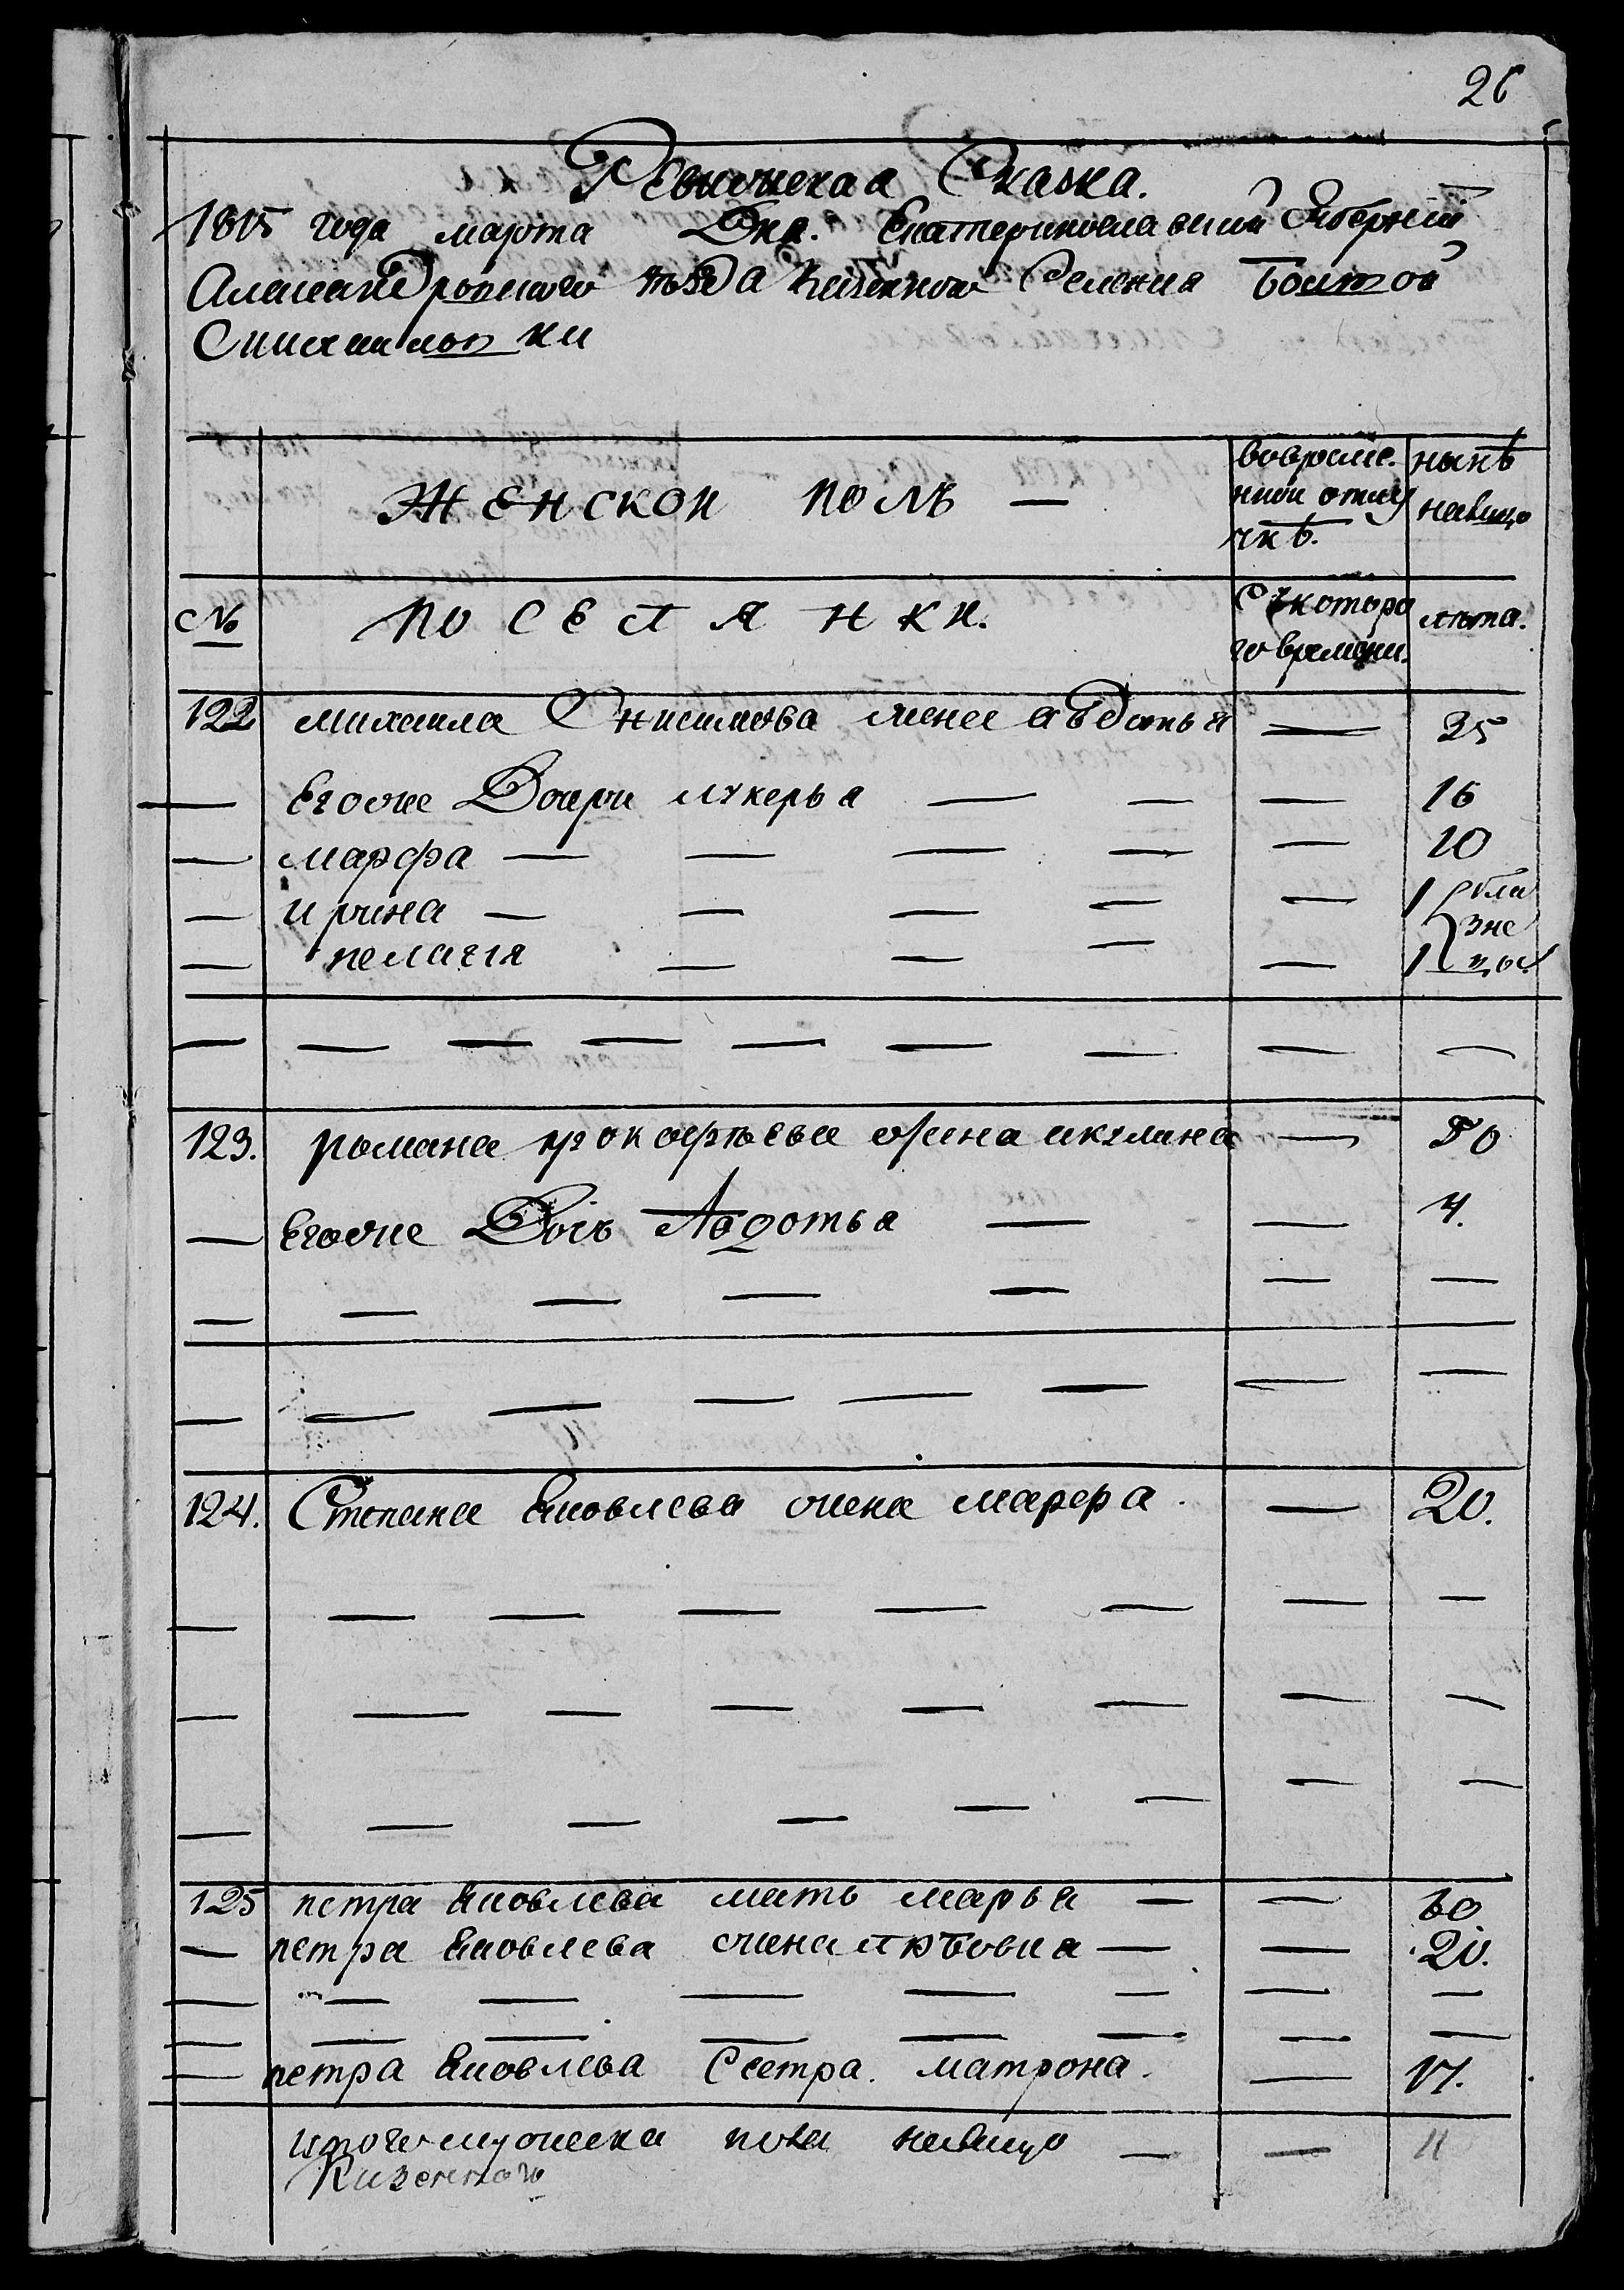 26
Ревизская Сказка.
1815 года марта Дня. Екатеринославской Губернии
Александровского уѣзда казенного Селения Большой
Михайловки
Женской полъ —
вовреме.
нной отлу
чкѣ.
нынѣ
налицо
№
поселянки.
Съ котора
го времени.
лѣта.
122 михаила Онисимова жена авдотья — 35
— Егоже Дочри лукерья — — — 16
— марфа — — — — — 10
— ирина — — — — — 1 бли
зне
— пелагія — — — — 1 цы
— — — — — — — — —
123. романа прокофьева жена акулина — 50
— Егоже Дочь Авдотья — — 4.
— — — — — — —
— — — — — — — —
124. Степана Яковлева жена марфа. — 20.
— — — — — — — —
— — — — — — — —
— — — — — — — —
125 петра Яковлева мать марья — — 60
— петра Яковлева жена — — 20.
— — — — — — — —
— — — — — — — —
— петра Яковлева Сестра. матрона. — 17.
итого женска пола налицо — — 11
Казенного